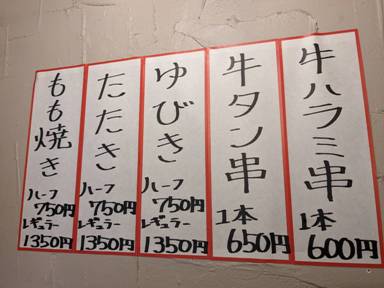 牛ハラミ串
1本
600円
牛タン串
1本
650円
ゆびき
ハーフ
750円
レギュラー
1350円
たたき
ハーフ
750円
レギュラー
1350円
もも焼き
ハーフ
750円
レギュラー
1350円